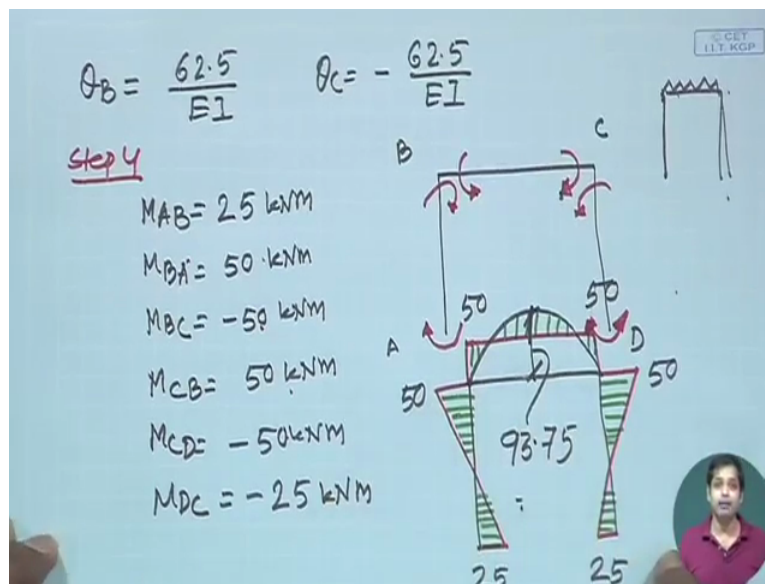 © CET
I.I.T. KGP
θB = 62.5/EI θC = - 62.5/EI
Step 4
MAB = 25 kNm
MBA = 50 kNm
MBC = -50 kNm
MCB = 50 kNm
MCD = -50kNm
MDC = -25 kNm
B
C
A
D
50
50
50
50
93.75
25
25